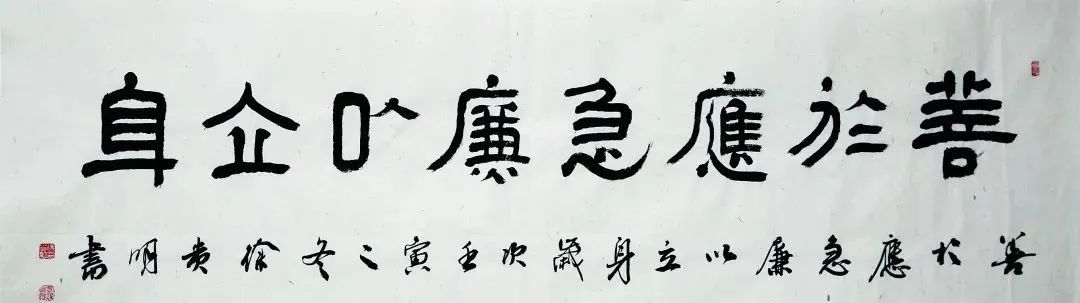 善於應急廉以立身
善於應急廉以立身歲次壬寅之冬徐貴明書